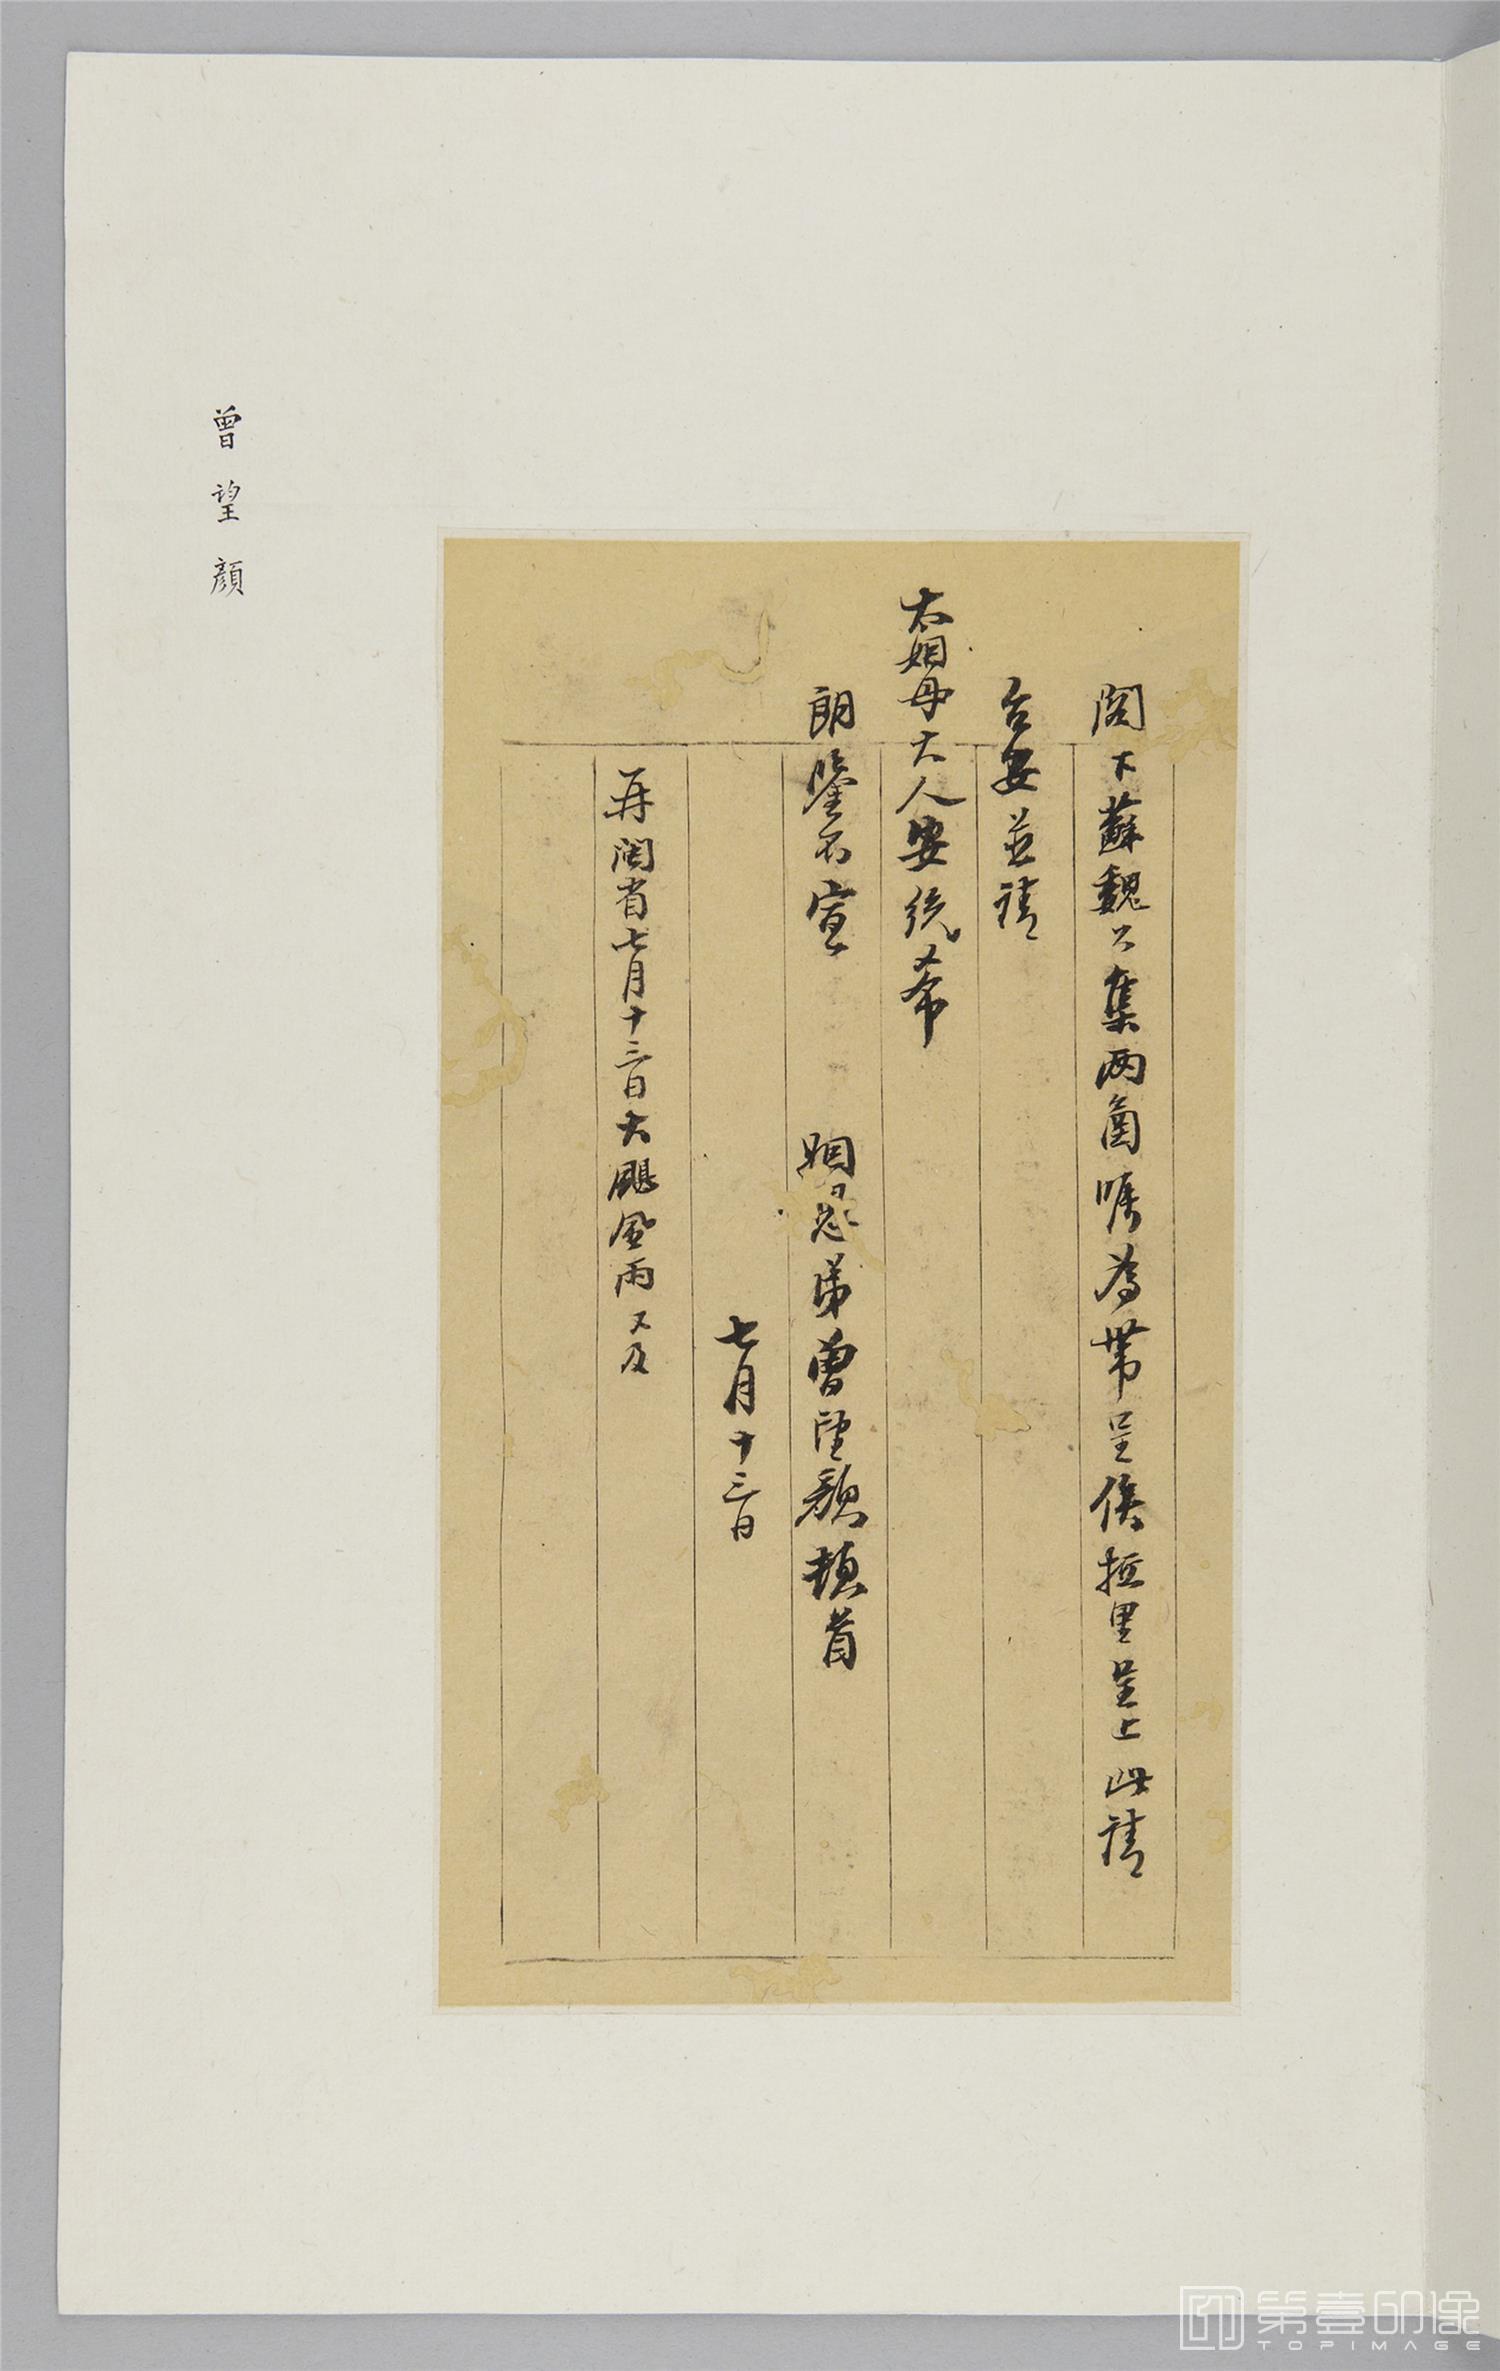 閣下蘇魏公集兩函囑為帶呈俟抵里呈上此請
台安並請
太姻母大人安統希
朗鑒不宣　姻愚弟曾望顏頓首
七月十三日
再閩省七月十三日大颶風雨又及
曾望顏
第壹印像
TOPIMAGE